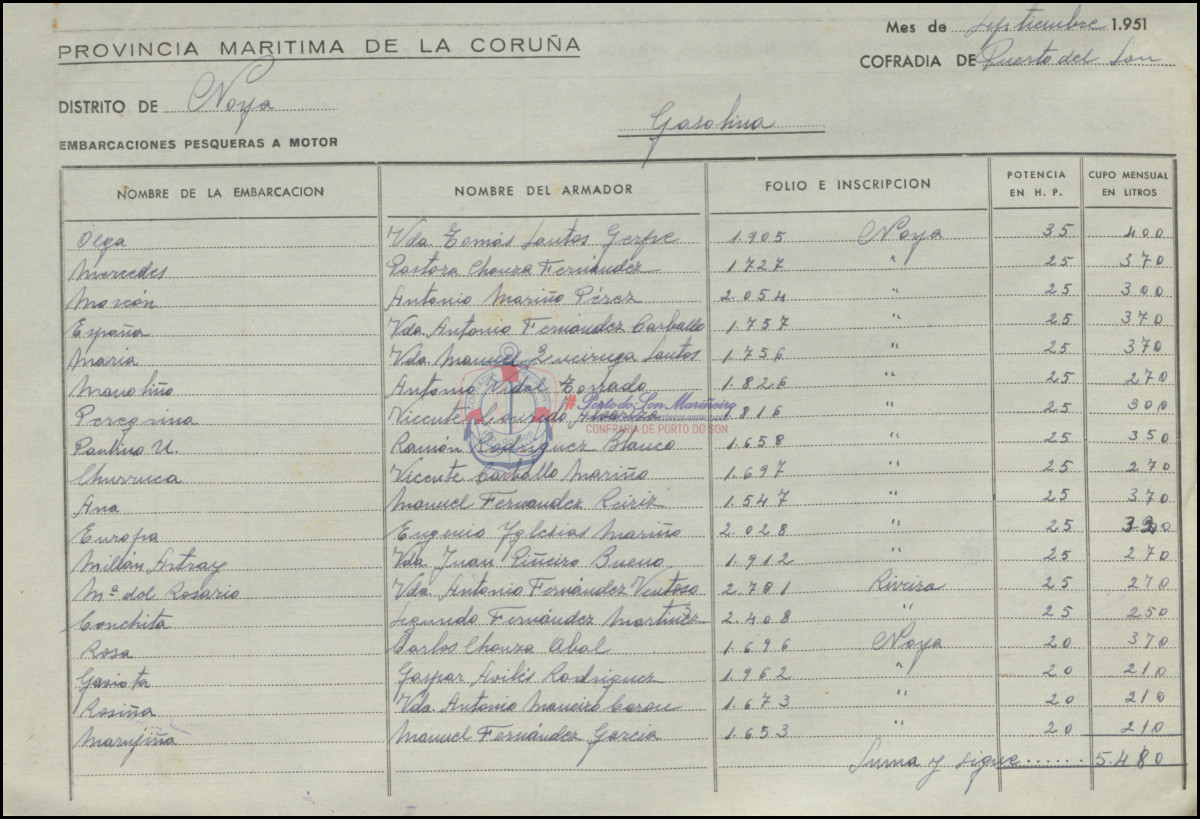 PROVINCIA MARITIMA DE LA CORUÑA
Mes de Septiembre 1.951
COFRADIA DE Puerto del Son
DISTRITO DE Noya
Gasolina
EMBARCACIONES PESQUERAS A MOTOR
NOMBRE DE LA EMBARCACION NOMBRE DEL ARMADOR FOLIO E INSCRIPCION POTENCIA EN H. P. CUPO MENSUAL EN LITROS
Olga Vda. Tomás Santos Gerpe 1.905 Noya 35 400
Mercedes Pastora Chouza Fernández 1.727 " 25 370
Moscón Antonio Mariño Pérez 2.054 " 25 300
España Vda. Antonio Fernández Carballo 1.757 " 25 370
Maria Vda. Manuel Suciruga Santos 1.756 " 25 370
Manoliño Antonio Vidal Torrado 1.826 " 25 270
Peregrina Vicente Louredo 1.816 " 25 300
Paulino U. Ramón Rodríguez Blanco 1.658 " 25 350
Churruca Vicente Carballo Mariño 1.697 " 25 270
Ana Manuel Fernandez Reiriz 1.547 " 25 370
Europa Eugenio Yglesias Mariño 2.028 " 25
Millán Astray Vda. Juan Piñeiro Bueno 1.912 " 25 270
Mª del Rosario Vda. Antonio Fernández Ventoso 2.781 Riveira 25 270
Conchita Segundo Fernández Martinez 2.408 " 25 250
Rosa Carlos Chouza Abal 1.696 Noya 20 370
Gaviota Gaspar Avilés Rodriguez 1.962 " 20 210
Rosiña Vda. Antonio Maneiro Carou 1.673 " 20 210
Marujiña Manuel Fernández Garcia 1.653 " 20 210
Suma y sigue 5.480
# Porto do Son Mariñeiro
CONFRARIA DE PORTO DO SON